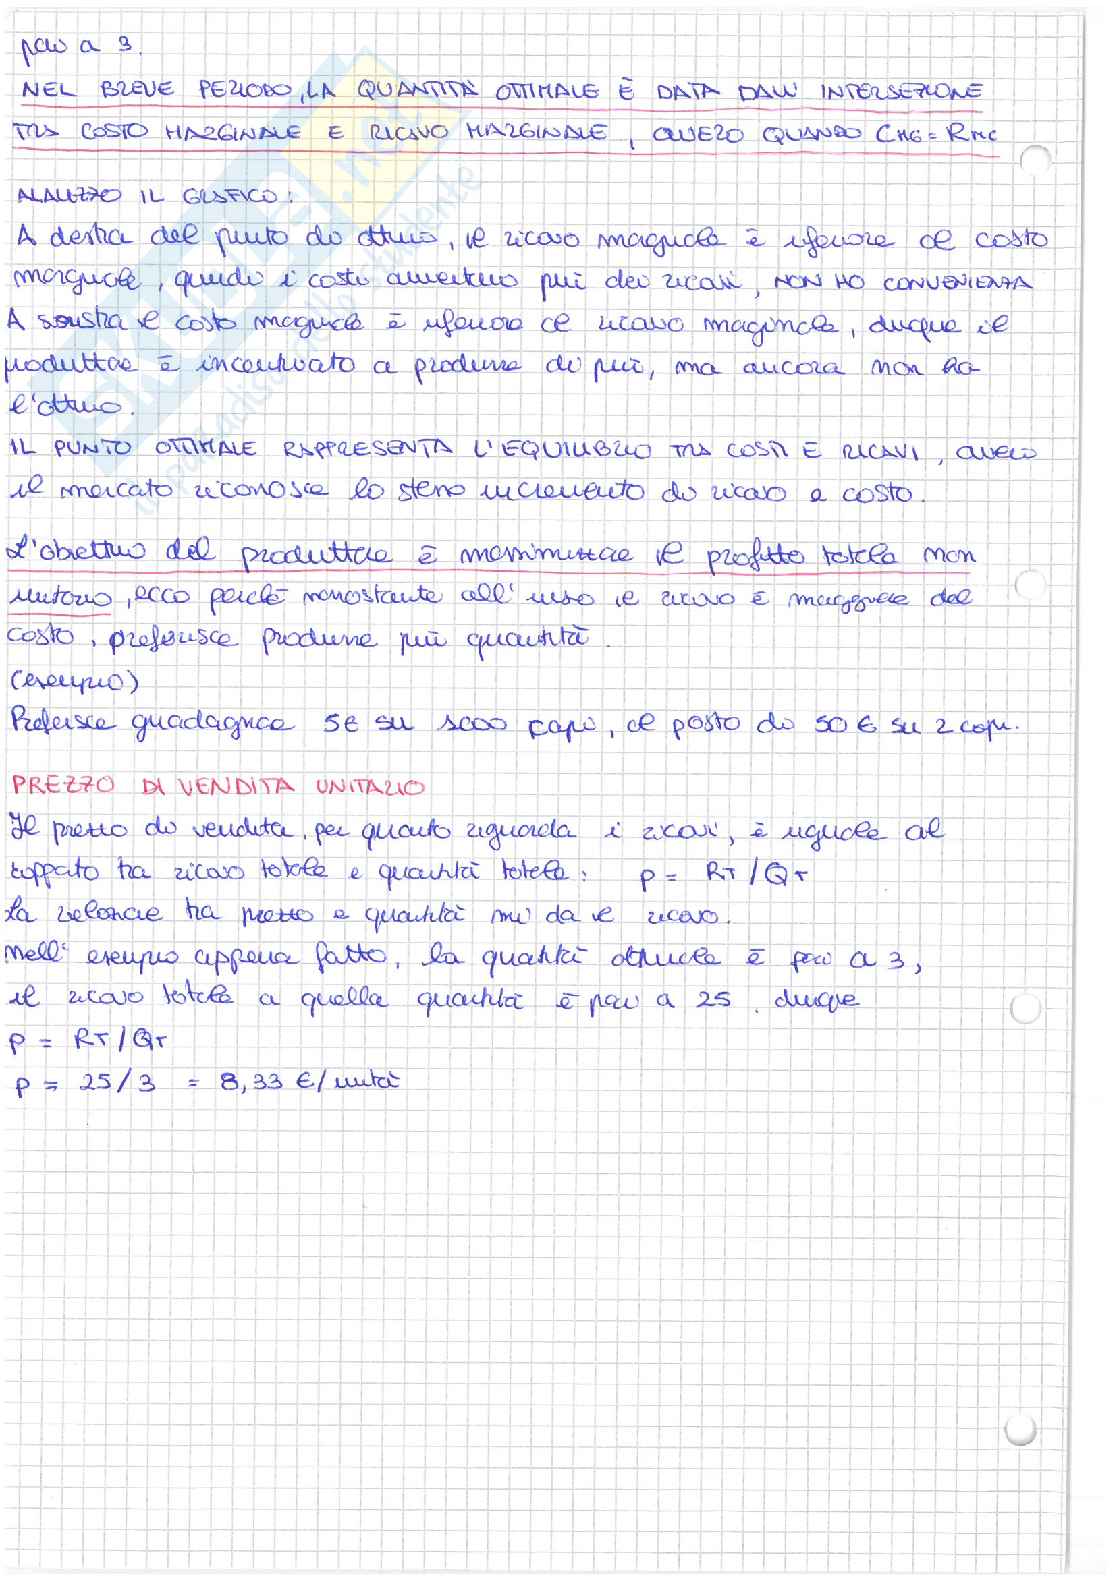 pari a 3.
NEL BREVE PERIODO, LA QUANTITÀ OTTIMALE È DATA DALL' INTERSEZIONE
TRA COSTO MARGINALE E RICAVO MARGINALE, OVVERO QUANDO CMG = RMG
ANALIZZO IL GRAFICO:
A destra del punto di ottimo, il ricavo marginale è inferiore al costo
marginale, quindi i costi aumentano più dei ricavi, NON HO CONVENIENZA
A sinistra il costo marginale è inferiore al ricavo marginale, dunque il
produttore è incentivato a produrre di più, ma ancora non ha
l'ottimo.
IL PUNTO OTTIMALE RAPPRESENTA L'EQUILIBRIO TRA COSTI E RICAVI, ovvero
il mercato riconosce lo stesso incremento di ricavo e costo.
L'obiettivo del produttore è massimizzare il profitto totale non
unitario, ecco perché nonostante all'inizio il ricavo è maggiore del
costo, preferisce produrre più quantità.
(esempio)
Preferisce guadagnare 5€ su 1000 capi, al posto di 50 € su 2 capi.
PREZZO DI VENDITA UNITARIO
Il prezzo di vendita, per quanto riguarda i ricavi, è uguale al
rapporto tra ricavo totale e quantità totale: p = RT/QT
La relazione tra prezzo e quantità mi da il ricavo.
Nell' esempio appena fatto, la quantità ottimale è pari a 3,
il ricavo totale a quella quantità è pari a 25. dunque
p = RT/QT
p = 25/3 = 8,33 €/unità
SKUOLA.net